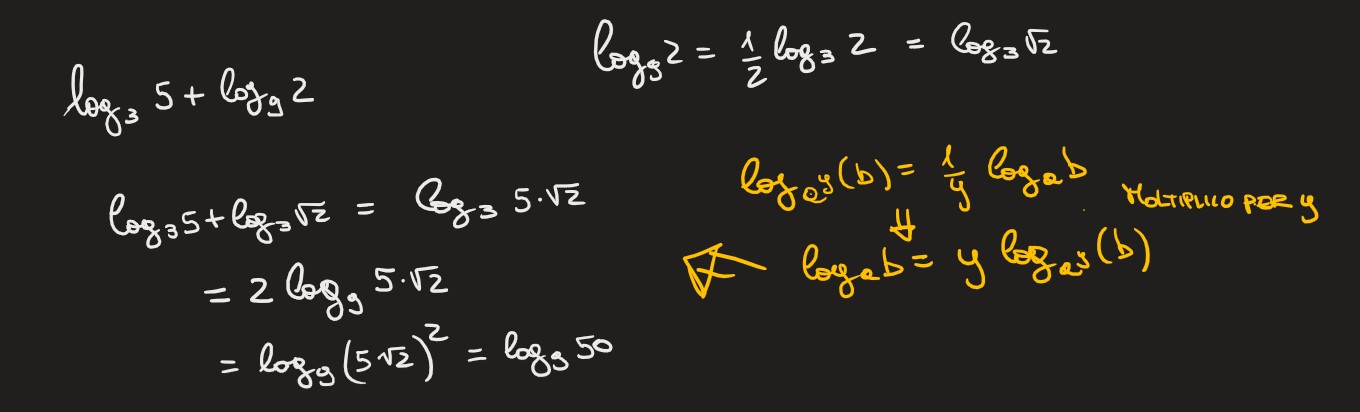 log₃ 5 + log₉ 2
log₉ 2 = 1/2 log₃ 2 = log₃ √2
log₃ 5 + log₃ √2 = log₃ 5·√2
= 2 log₉ 5·√2
= log₉ (5√2)² = log₉ 50
log_{a^y}(b) = 1/y log_a b
MOLTIPLICO PER y
⇓
log_a b = y log_{a^y}(b)